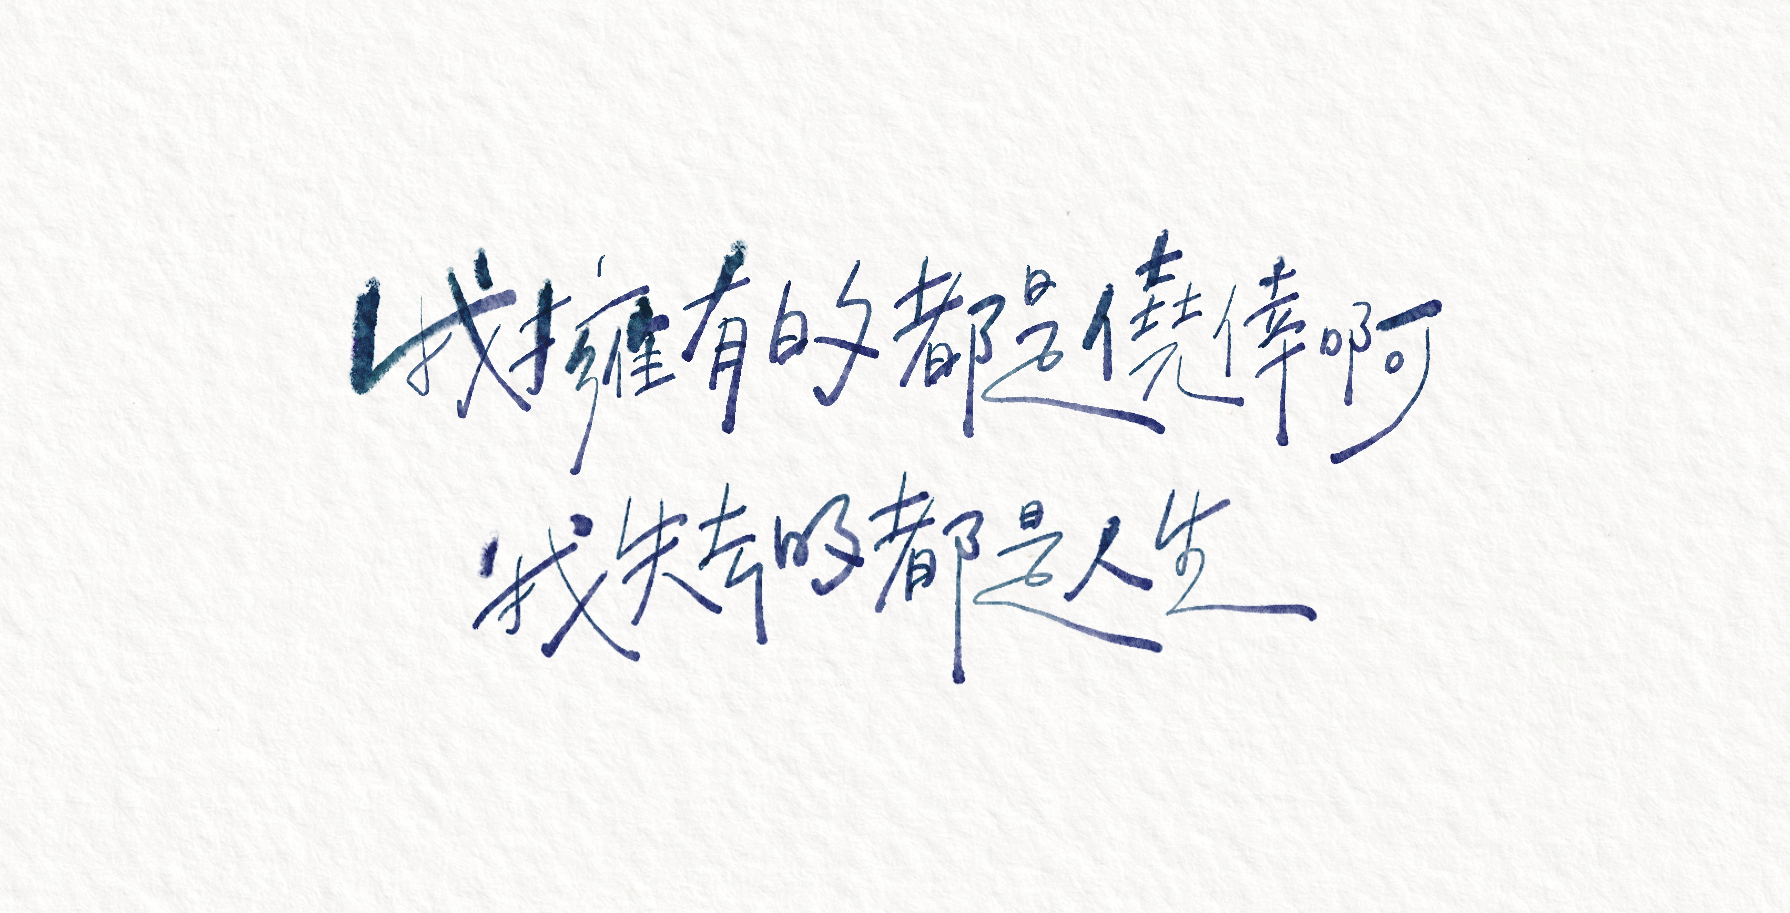 我擁有的都是僥倖啊
我失去的都是人生